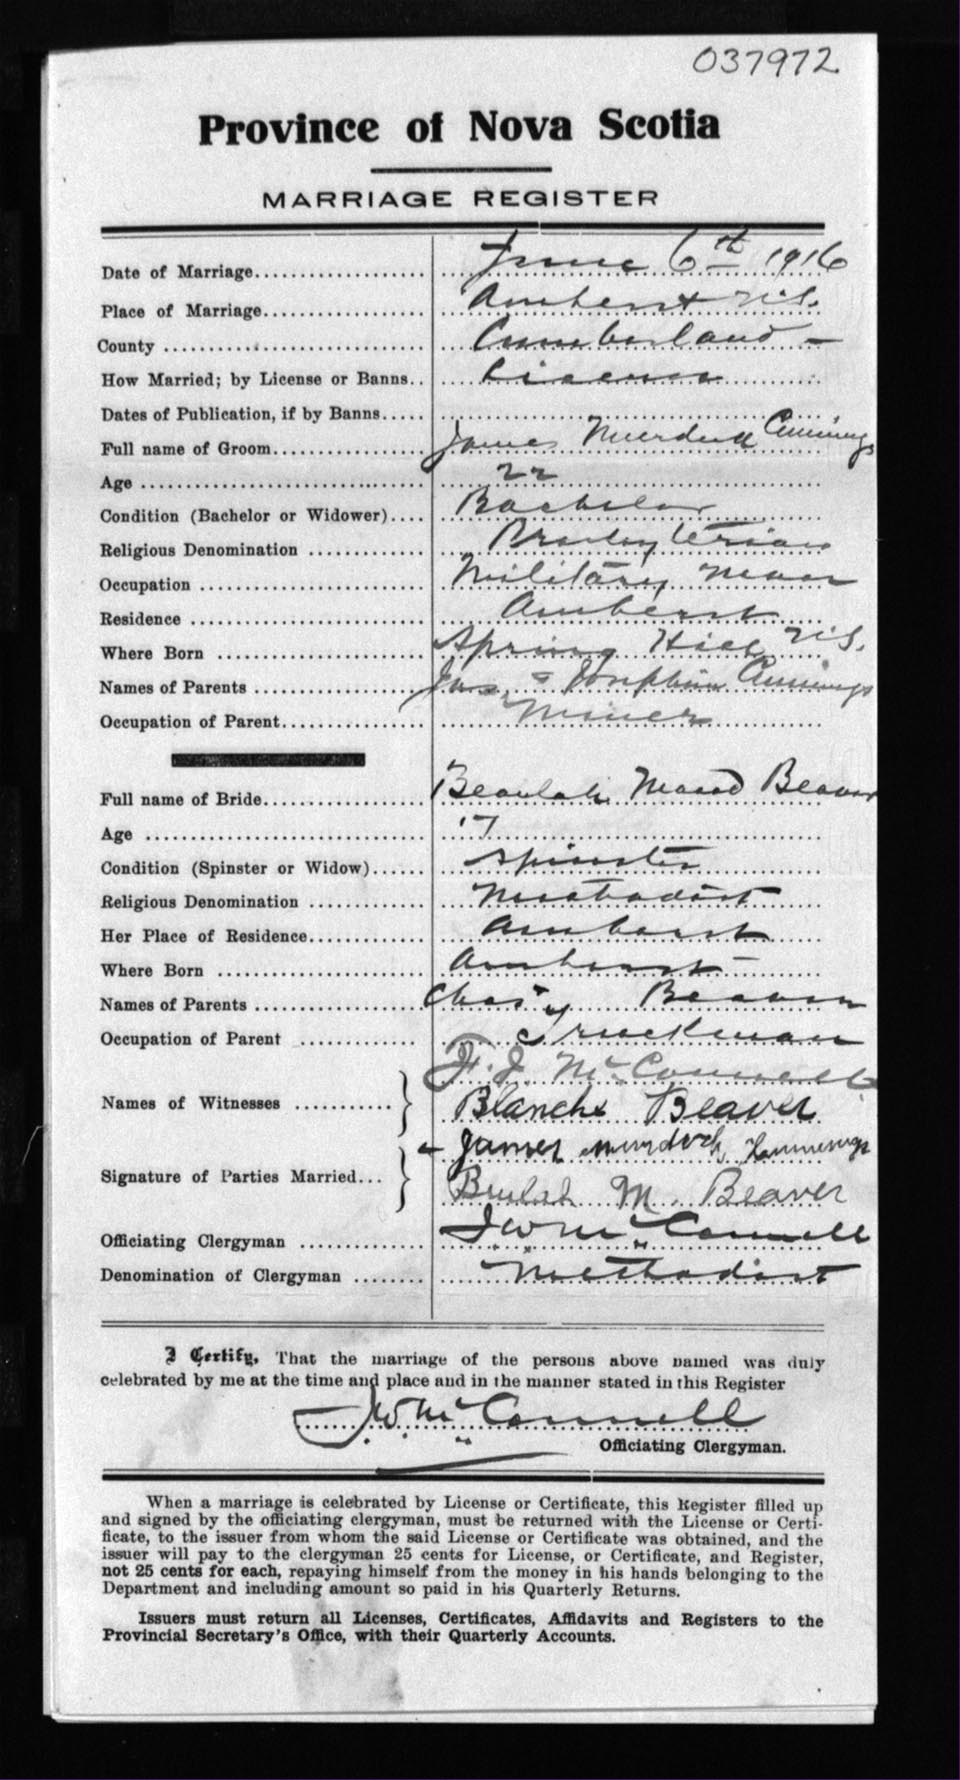 037972
Province of Nova Scotia
MARRIAGE REGISTER
Date of Marriage June 6th 1916
Place of Marriage Amherst N.S.
County Cumberland
How Married; by License or Banns License
Dates of Publication, if by Banns
Full name of Groom James Murdock Cummings
Age 22
Condition (Bachelor or Widower) Bachelor
Religious Denomination Presbyterian
Occupation Military man
Residence Amherst
Where Born Spring Hill N.S.
Names of Parents Jas & Josephine Cummings
Occupation of Parent Miner
Full name of Bride Beaulah Maud Beaver
Age 17
Condition (Spinster or Widow) Spinster
Religious Denomination Methodist
Her Place of Residence Amherst
Where Born Amherst
Names of Parents Chas Beaver
Occupation of Parent Truckman
Names of Witnesses F. J. McConnell
Blanche Beaver
Signature of Parties Married James Murdock
Beulah M. Beaver
Officiating Clergyman J W McConnell
Denomination of Clergyman Methodist
I Certify, That the marriage of the persons above named was duly
celebrated by me at the time and place and in the manner stated in this Register
J. W. McConnell
Officiating Clergyman.
When a marriage is celebrated by License or Certificate, this Register filled up
and signed by the officiating clergyman, must be returned with the License or Certi-
ficate, to the issuer from whom the said License or Certificate was obtained, and the
issuer will pay to the clergyman 25 cents for License, or Certificate, and Register,
not 25 cents for each, repaying himself from the money in his hands belonging to the
Department and including amount so paid in his Quarterly Returns.
Issuers must return all Licenses, Certificates, Affidavits and Registers to the
Provincial Secretary's Office, with their Quarterly Accounts.